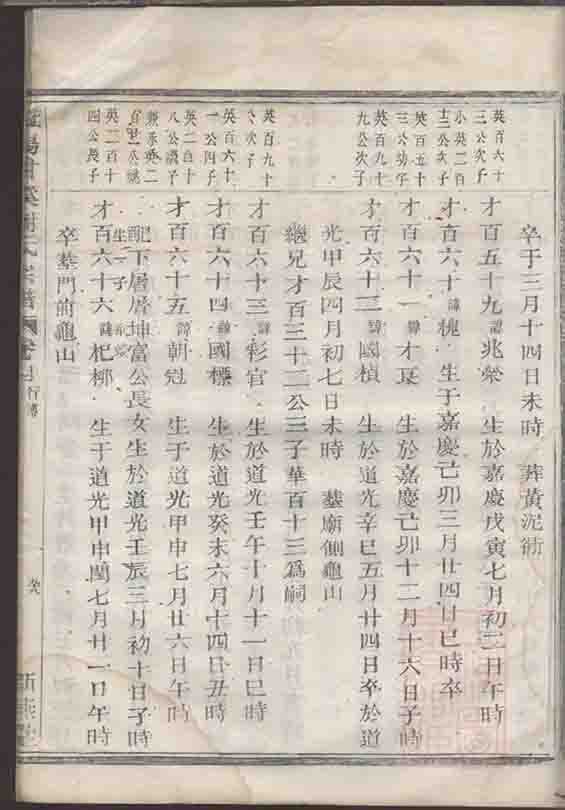 卒于三月十四日未時 葬黃泥衕
英百六十三公次子
才百五十九諱兆榮 生於嘉慶戊寅七月初二日午時
小英二百十二公次子
才百六十諱槐 生于嘉慶己卯三月廿四日巳時卒
英百五十三公幼子
才百六十一諱才 生於嘉慶己卯十二月十六日子時
英百九十九公次子
才百六十二諱國楨 生於道光辛巳五月廿四日卒於道
光甲辰四月初七日未時 墓廟側龜山
繼兄才百三十二公三子華百十三為嗣
英百九十次子
才百六十三諱彩官 生於道光壬午十月十一日巳時
英百六十一公四子
才百六十四諱國標 生於道光癸未六月十四日丑時
英二百十八公議子
才百六十五諱朝冠 生于道光甲申七月廿六日午時
兼承英二
配下厝厝坤富公長女生於道光壬辰三月初十日子時
生一子
英二百十四公長子
才百六十六諱杞栁 生于道光甲申閏七月廿一日午時
卒墓門前龜山
氏宗譜 卷 行傳